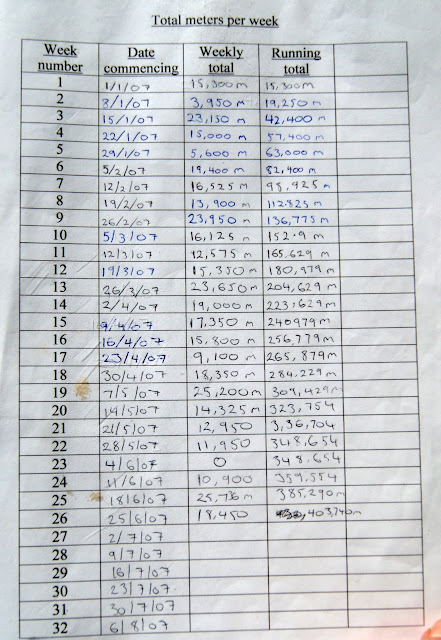 Total meters per week
Week number Date commencing Weekly total Running total
1 1/1/07 15,300m 15,300m
2 8/1/07 3,950m 19,250m
3 15/1/07 23,150m 42,400m
4 22/1/07 15,000m 57,400m
5 29/1/07 5,600m 63,000m
6 5/2/07 19,400m 82,400m
7 12/2/07 16,525m 98,925m
8 19/2/07 13,900m 112.825m
9 26/2/07 23,950m 136,775m
10 5/3/07 16,125m 152.9m
11 12/3/07 12,575m 165,629m
12 19/3/07 15,350m 180,979m
13 26/3/07 23,650m 204,629m
14 2/4/07 19,000m 223,629m
15 9/4/07 17,350 240979m
16 16/4/07 15,800m 256,779m
17 23/4/07 9,100m 265,879m
18 30/4/07 18,350m 284,229m
19 7/5/07 25,200m 309,429m
20 14/5/07 14,325m 323,754
21 21/5/07 12,950 3,36,704
22 28/5/07 11,950 348,654
23 4/6/07 0 348,654
24 11/6/07 10,900 359,554
25 18/6/07 25,736m 385,290m
26 25/6/07 18,450 403,740m
27 2/7/07
28 9/7/07
29 16/7/07
30 23/7/07
31 30/7/07
32 6/8/07